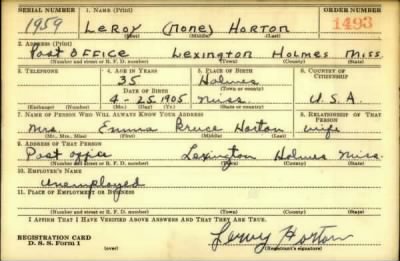 SERIAL NUMBER 1. NAME (Print) ORDER NUMBER
1959 LeRoy (None) Horton 1493
(First) (Middle) (Last)
2. ADDRESS (Print)
Post Office Lexington Holmes Miss.
(Number and street or R. F. D. number) (Town) (County) (State)
3. TELEPHONE 4. AGE IN YEARS 5. PLACE OF BIRTH 6. COUNTRY OF CITIZENSHIP
35 Holmes
DATE OF BIRTH (Town or county)
4-25-1905 Miss. U.S.A.
(Exchange) (Number) (Mo.) (Day) (Yr.) (State or country)
7. NAME OF PERSON WHO WILL ALWAYS KNOW YOUR ADDRESS 8. RELATIONSHIP OF THAT PERSON
Mrs. Emma Horton wife
(Mr., Mrs., Miss) (First) (Middle) (Last)
9. ADDRESS OF THAT PERSON
Post office Lexington Holmes Miss.
(Number and street or R. F. D. number) (Town) (County) (State)
10. EMPLOYER'S NAME
Unemployed
11. PLACE OF EMPLOYMENT OR BUSINESS
(Number and street or R. F. D. number) (Town) (County) (State)
I AFFIRM THAT I HAVE VERIFIED ABOVE ANSWERS AND THAT THEY ARE TRUE.
REGISTRATION CARD
D. S. S. Form 1 (over) Leroy Horton
(Registrant's signature)